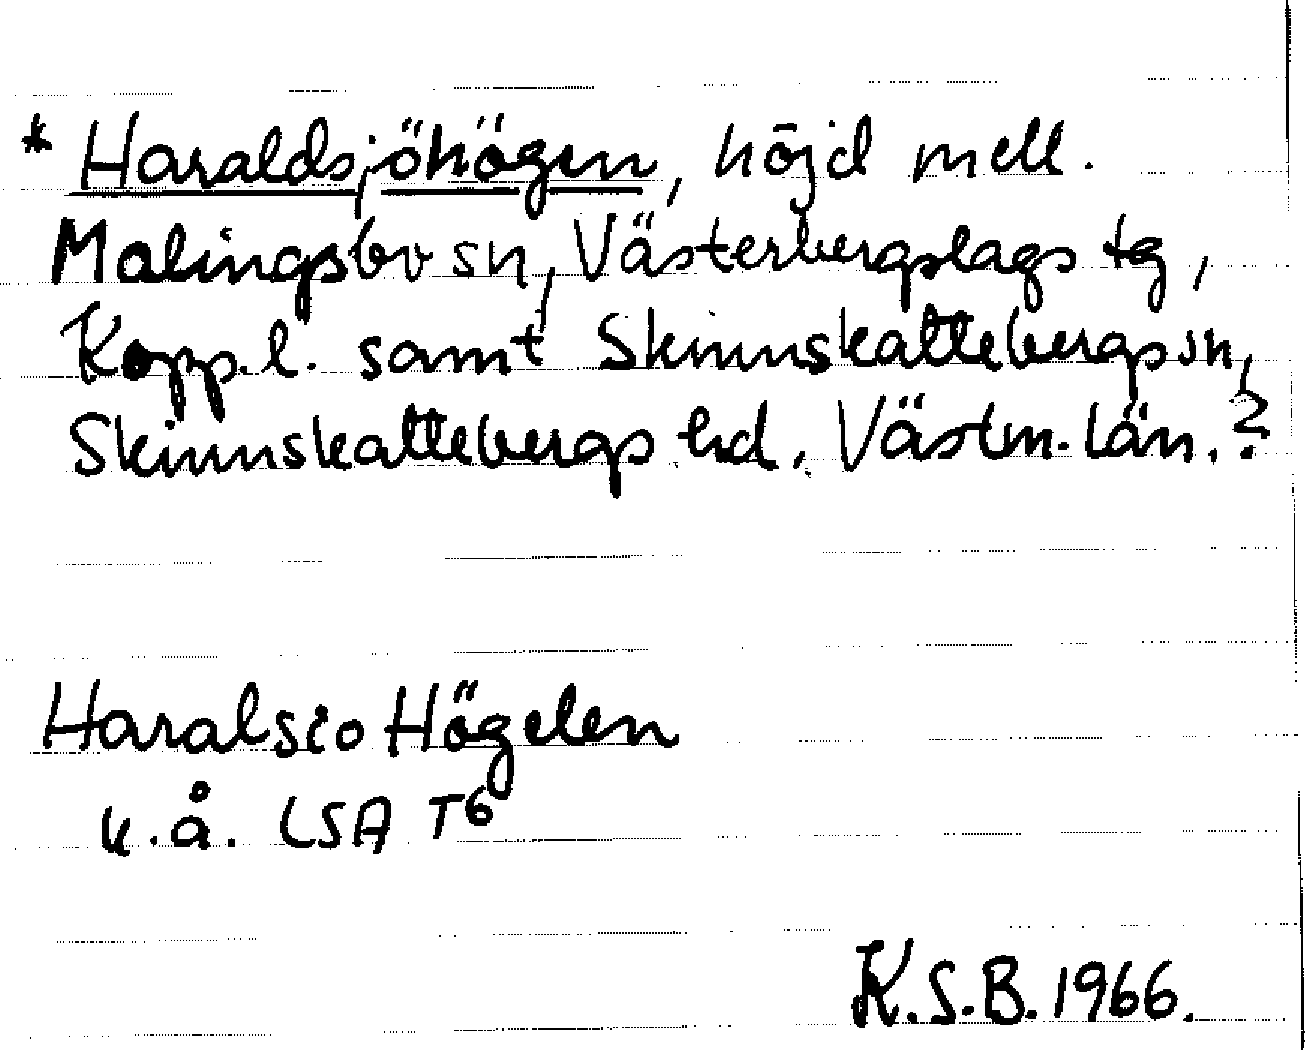 * Haraldsjöhögen, höjd mell.
Malingsbo sn, Västerbergslags tg,
Kopp.l. samt Skinnskattebergs sn,
Skinnskattebergs hd, Västm. län.?
Haralsio Högelen
u.å. LSA T6
K.S.B. 1966.